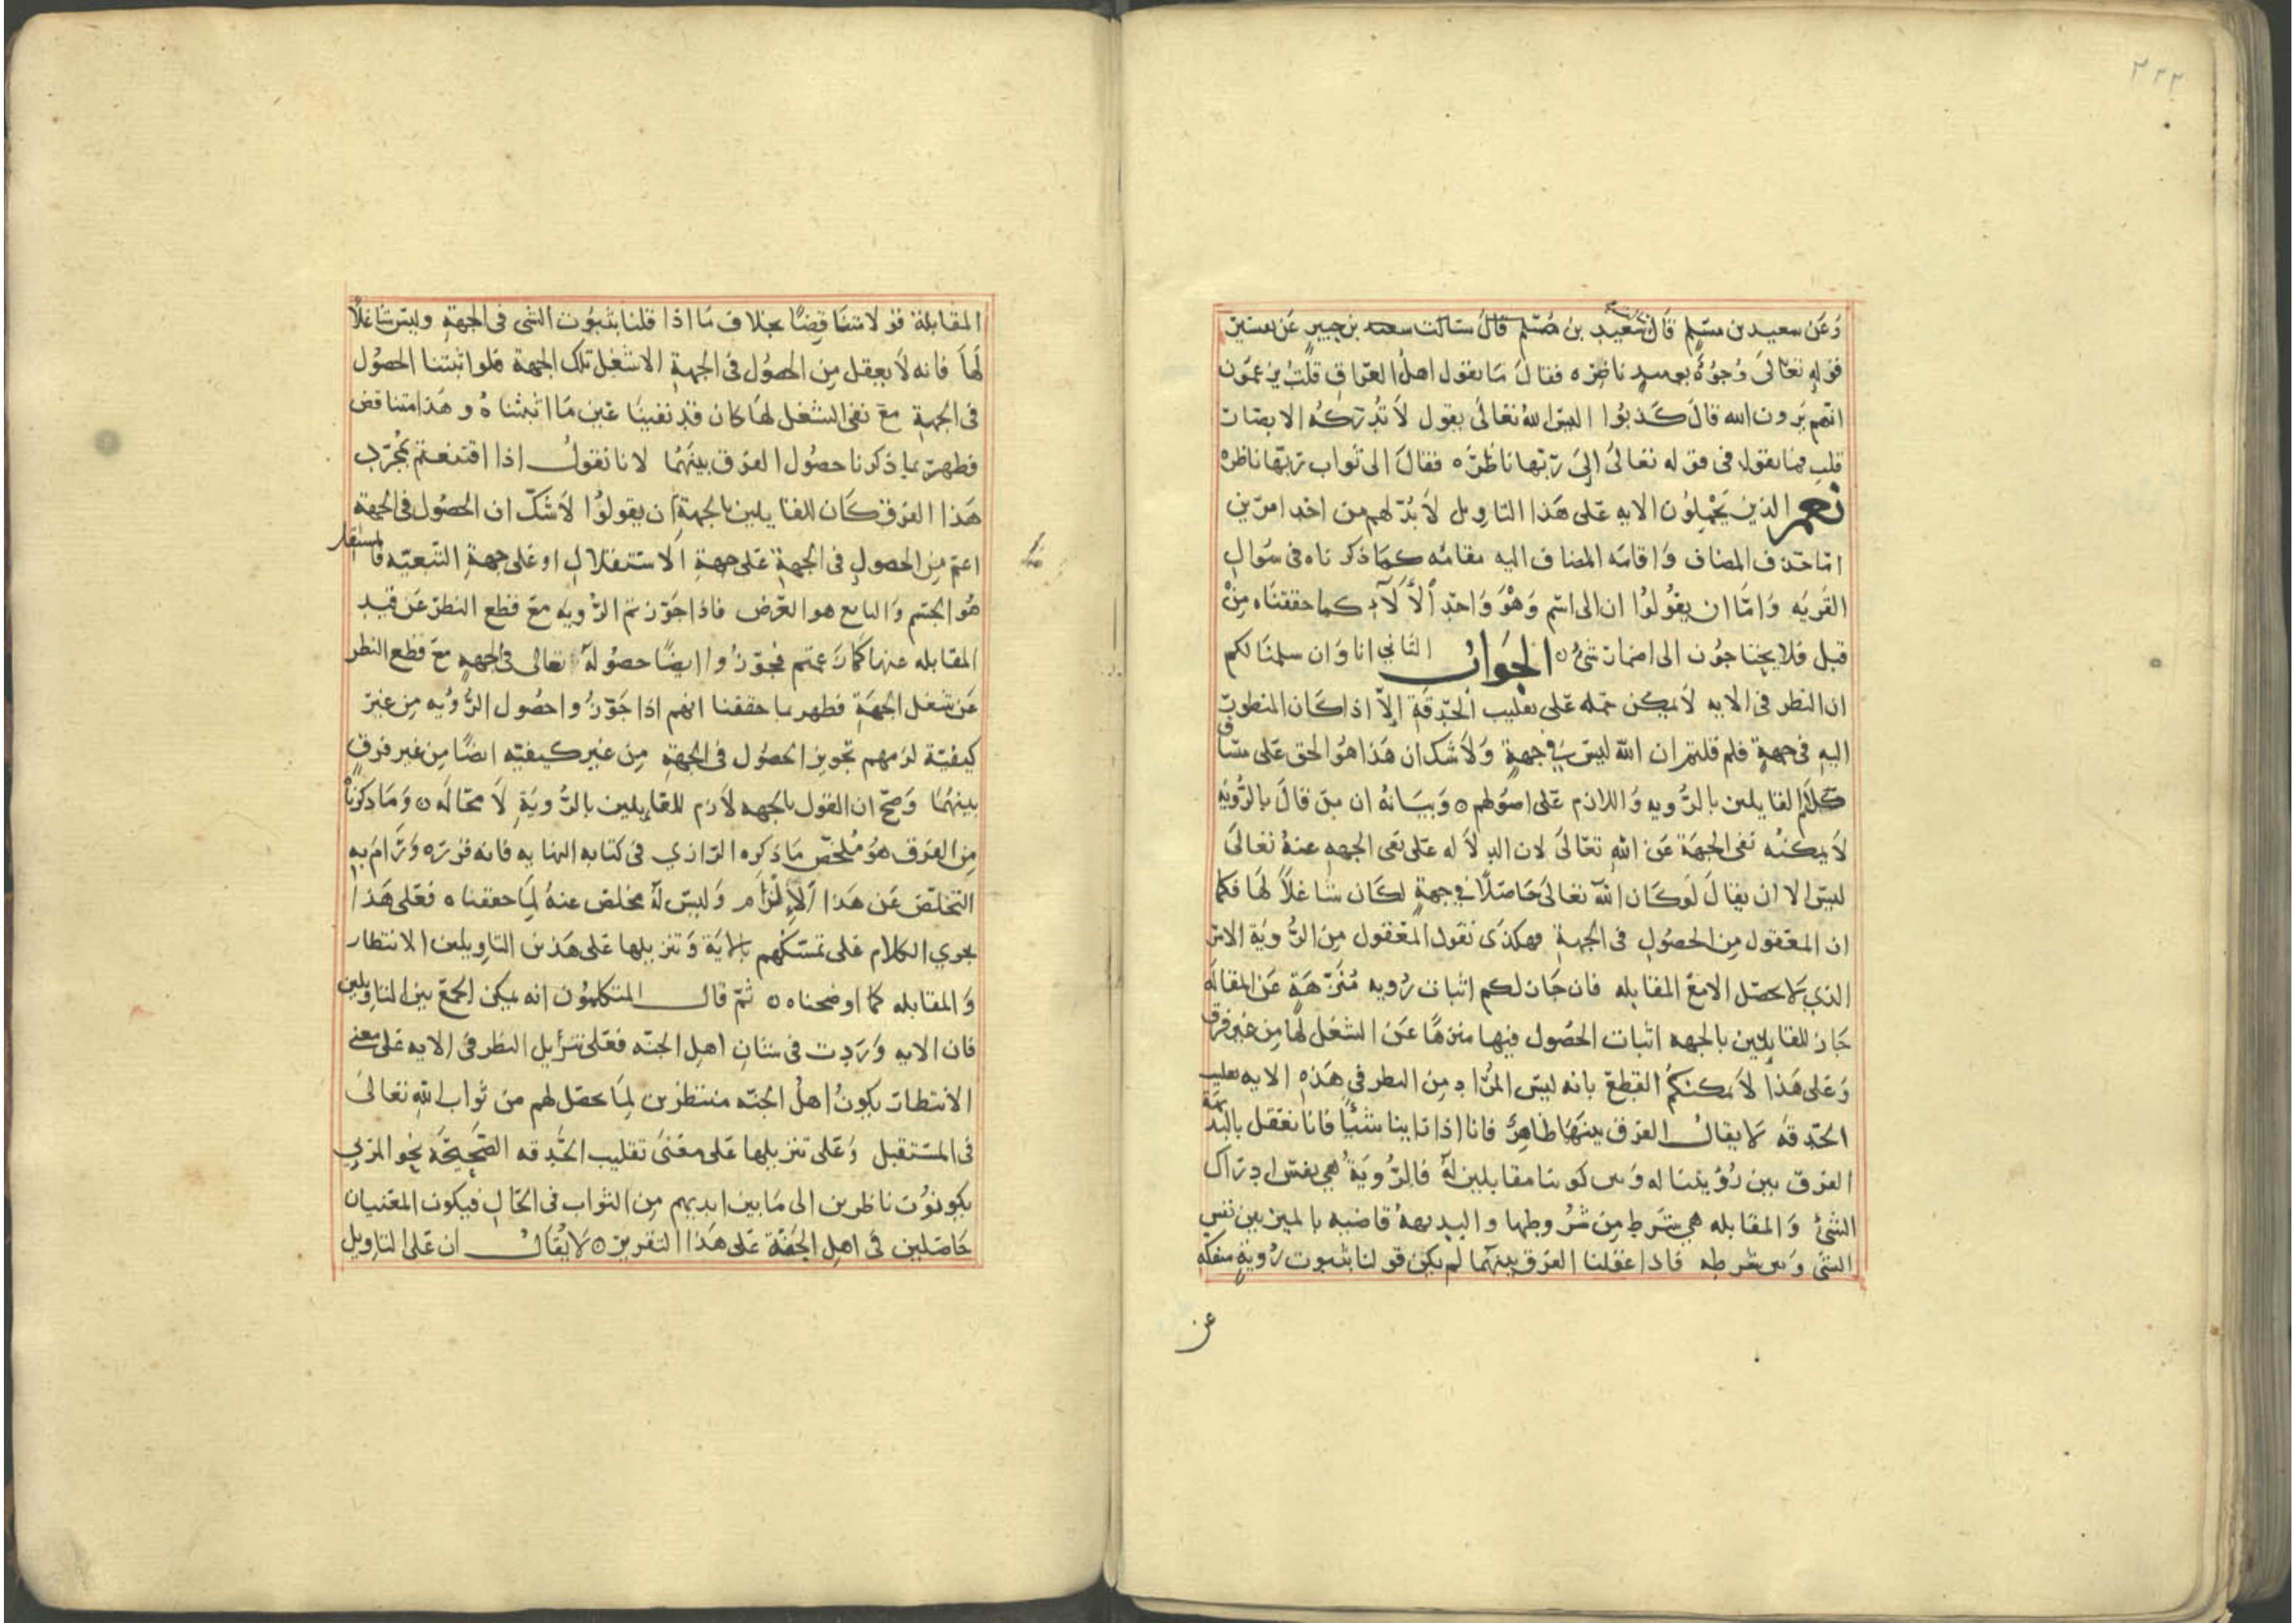 ٢٢٢
وَعَن سعيد بن مسلم قال سعيد بن مسلم قال سالت سعيد بن جبير عَن تفسير
قوله تعالى وُجُوهٌ يومئذ ناضره فقال مَا يقول اهل العراق قلت يزعمون
انهم يرون الله قال كذبوا اليس الله تعالى يقول لا تُدركه الابصار
قلت فما يقول فى قوله تعالى إلى ربّها ناظره فقال الى ثواب ربها ناظره
نعم الذين يَحْمِلُون الايه على هذا التاويل لا بُدّ لهم من احد امرين
امّا حذف المضاف وَاقامه المضاف اليه مقامه كما ذكرناه فى سُوال
القريه وَامّا ان يقُولُوا ان الى اسم وَهْوَ وَاحد ٱلْآلآء كما حققناه مِنْ
قبل فلا يحتاجون الى اضمار شىٔ ٥ الجَوَابُ الثاني انا وَان سلمنا لكم
ان النظر فى الايه لا يمكن حمله على تقليب الحدقة إلّا اذا كان المنظور
اليه فى جهة فلم قلتم ان الله ليسَ في جهةٍ وَلا شك ان هَذا هوُ الحق على مسَاق
كلام القايلين بالرُّويه وَاللازم على اصولهم ٥ وَبيَانهُ ان من قال بالرُّويَه
لا يمكنهُ نفى الجهَة عَن اللهِ تعَالىَ لان الدلاله على نفى الجهه عنهُ تعَالىَ
ليس الا ان يقالَ لَوكان اللّه تعالى حَاصلًا في جهةٍ لكَان شَاغلًا لها فكما
ان المعقول من الحصُولِ فى الجهةِ فهكذى نقول المعقول مِن الرُّويَة الامر
الذي لا يحصَل الامعَ المقابله فان جَازَ لكم اثبات رُويه مُنَزّهَةٍ عَن المقابلَه
جَاز للقايلين بالجهه اثبات الحصُول فيها منزهًا عَن الشغل لها من غير فرق
وَعَلى هَذا لا يمكنكم القطع بانه ليسَ المرُاد مِن النظر في هَذهِ الايه تقليب
الحدقه لا يقالُ الفرق بينَهما ظاهِرٌ فانا اذا راينا شَيئًا فانا نعقل بالبديهَة
الفرق بين رُؤيتنا له وَبين كوننا مقابلين لهُ فالرُّويَة هي نفس ادراك
الشئ وَالمقابله هي شرط مِن شرُوطها والبديههُ قاضيه بالميز بين نفس
الشئ وَبين شرطه فاذا عقلنا الفرق بينهما لم يكن قولنا بثبوت رُويةٍ منفكه
عن
المقابلة قولا متناقِضًا بخلاف مَا اذا قلنا بثبُوت الشى فى الجهَةِ وليسَ شاغلًا
لهَا فانه لا يعقل مِن الحصُول فى الجهةِ الا شغل تلك الجهة فلو اثبتنا الحصُول
فى الجهةِ معَ نفى الشغل لهَا كان قد نفينَا عَين مَا اثبتناهُ وهَذا متناقض
فظهر بما ذكرنا حصُول الفرق بينَهُما لانا نقولُ اذا اقتنعتم بمُجرّدِ
هَذا الفرق كَان للقايلين بالجهة ان يقولوُا لا شكّ ان الحصُول فى الجهة
اعَم مِن الحصول فى الجهة عَلى جهةِ الاستقلالِ او عَلى جهةِ التبعيّه فالمستقل
هُو الجسم وَالتابع هو العَرض فاذا جَوّزتم الرُّويَه معَ قطع النظر عَن قيد
المقابله عنها كما زَعمتم فجوّزُوا ايضًا حصُولهُ تعالى فى الجهةِ مَع قطع النظر
عَن شغل الجهَةِ فظهر بما حققنا انهم اذا جَوّزُوا حصُول الرُّويه مِن غير
كيفيّة لزمهم تجويز الحصُول فى الجهةِ مِن غير كيفيّه ايضًا مِن غير فرقٍ
بينهُما وَصحّ ان القول بالجَهه لازم للقايلين بالرُّويَةِ لا محَالَه ٥ وَمَا ذكرناهُ
مِن الفرَق هوَ مُلخّص مَا ذكره الرازي فى كتابه النهايه فانه قرره وَرَامَ به
التخلّص عَن هَذا الْإِلْزَام وَليسَ لهُ مخلص عنهُ لِمَا حققناه فعَلى هَذا
يجري الكلام عَلى تمسّكهم بالايَة وَتنزيلها عَلى هَذين التاويلين الانتظار
وَالمقابله كما اوضحناه ٥ ثمّ قال المتكلموُن انه يمكن الجمع بين التاويلين
فان الايه وَرَدت فى شان اهل الجنّه فعَلى تنزيل النظر فى الايه عَلى معنى
الانتظار يكونُ اهلُ الجنّه منتظرين لِمَا يحصَل لهم من ثواب اللهِ تعالىَ
فى المسْتقبل وَعَلى تنزيلها عَلى معْنىَ تقليب الحَدقه الصَّحِيْحَه نحو المرئي
يكونُوُن ناظرين الى مَا بين ايديهم مِن الثواب فى الحَالِ فيكون المعْنيان
حَاصلين فى اهِل الجَنّة عَلى هَذا التقرير ٥ لا يُقَالُ ان عَلى التاويل